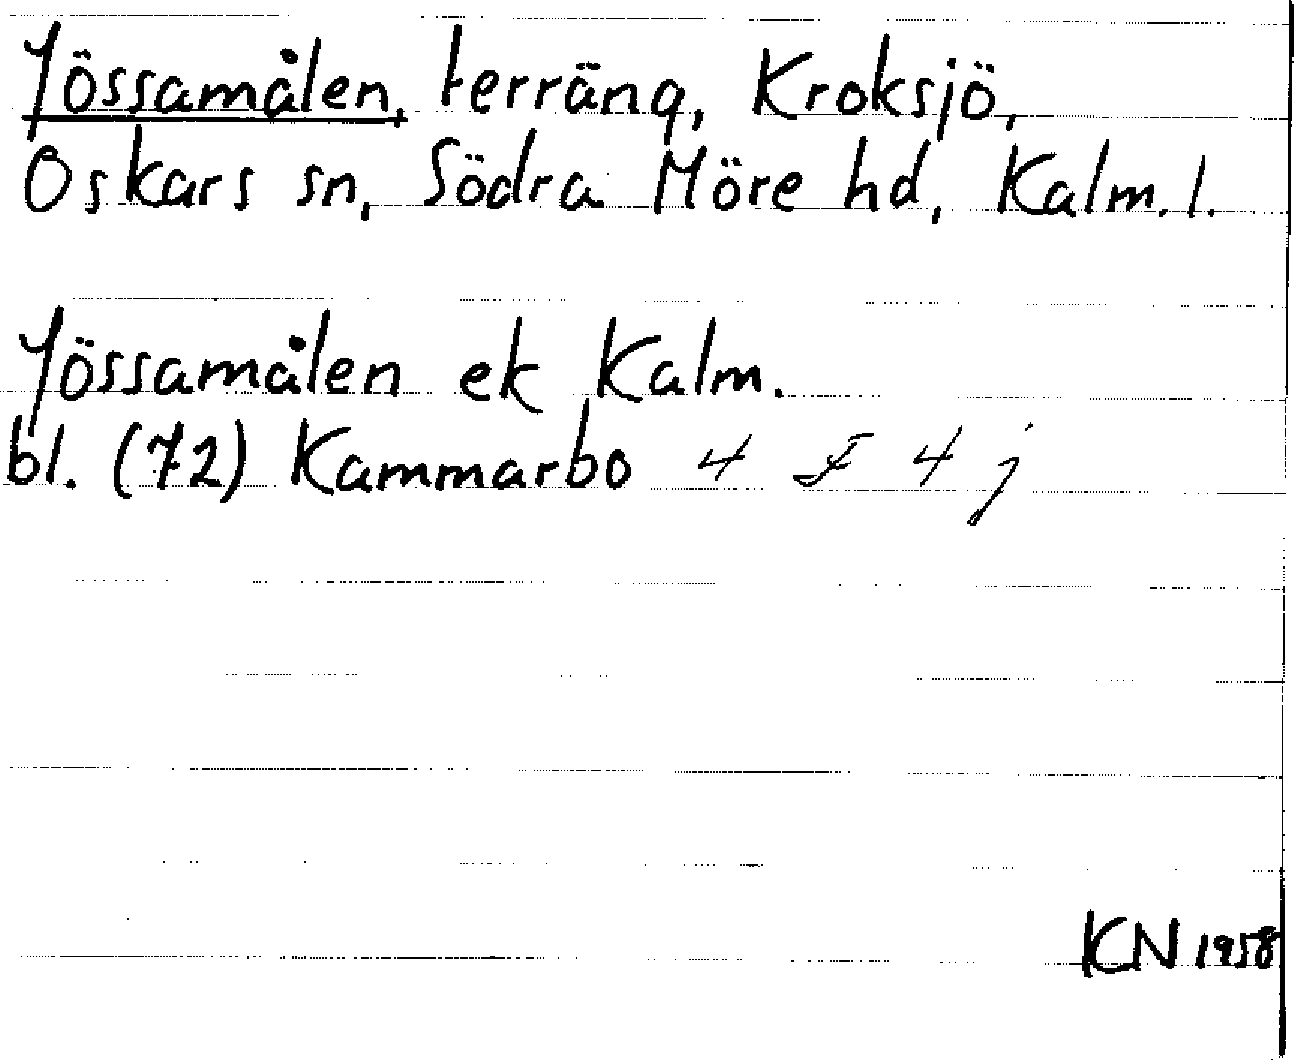 Jössamålen, terräng, Kroksjö,
Oskars sn, Södra Möre hd, Kalm. l.
Jössamålen ek Kalm.
bl. (72) Kammarbo 4 F 4 j
KN 1958